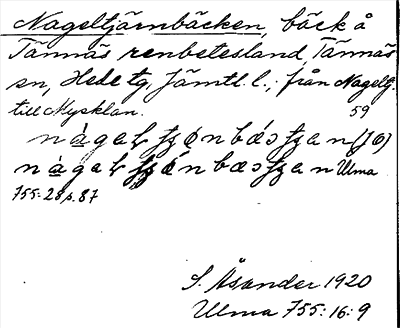 Nageltjärnbäcken, bäck å
Tännäs renbetesland, Tännäs
sn, Hede tg, Jämtl. l.; från Nageltj.
till Mysklan. 59
(JO)
Ulma
755:28 s. 87
S. Åsander 1920
Ulma 755:16:9